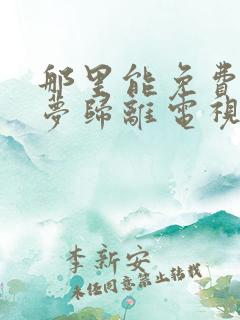 那里能免費
夢歸離電視
李新安
未经同意禁止转载